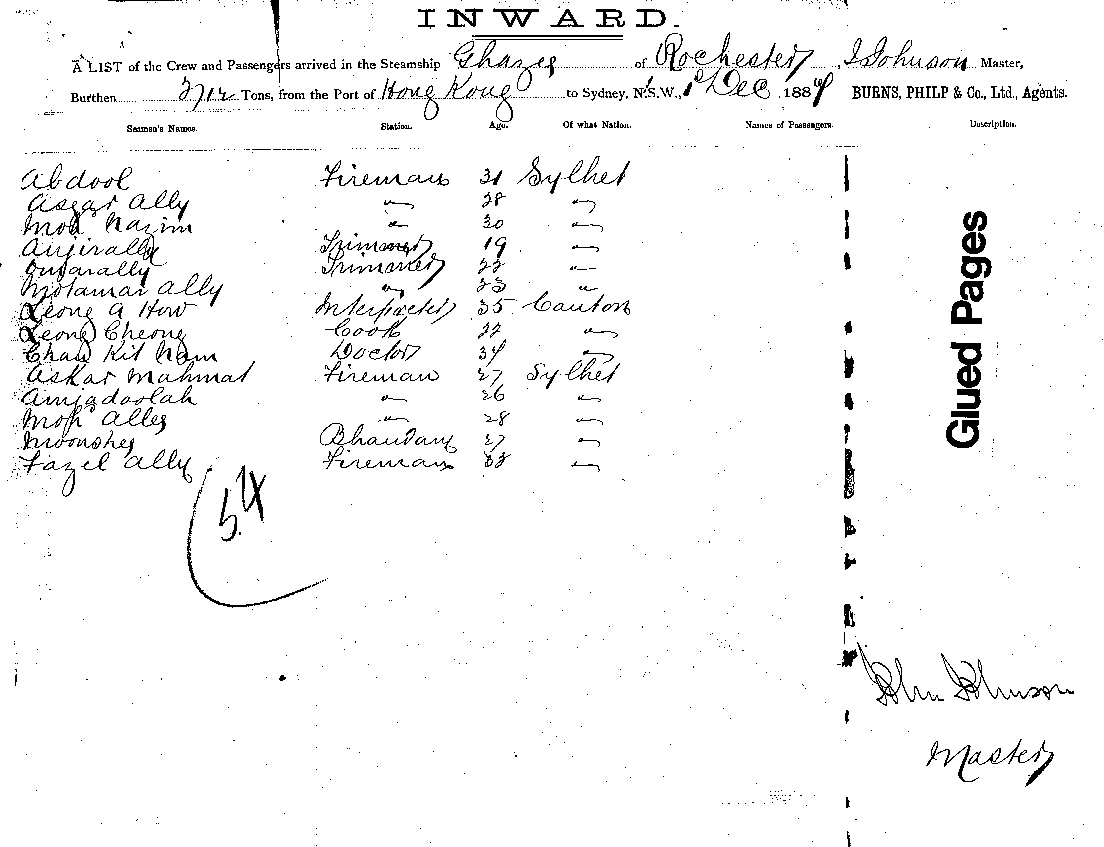 INWARD.
A LIST of the Crew and Passengers arrived in the Steamship Ghazee of Rochester, J Johnson Master,
Burthen Tons, from the Port of Hong Kong to Sydney, N.S.W., 1st Dec 188 BURNS, PHILP & Co., Ltd., Agents.
Seamen's Names. Station. Age. Of what Nation. Names of Passengers. Description.
Abdool Fireman 31 Sylhet
Asgar Ally " 28 "
Mod Nazim " 30 "
Anjirally Trimmer 19 "
Trimmer 22 "
Motamar Ally " 23 "
Leong A How Interpreter 35 Canton
Leong Cheong Cook 22 "
Chau Kit Nam Doctor 34 "
Askar Mahmat Fireman 27 Sylhet
Amjadoolah " 26 "
Moh Alles " 28 "
Moonshee Bhandary 27 "
Fazel Ally Fireman 38 "
54
Glued Pages
John Johnson
Master